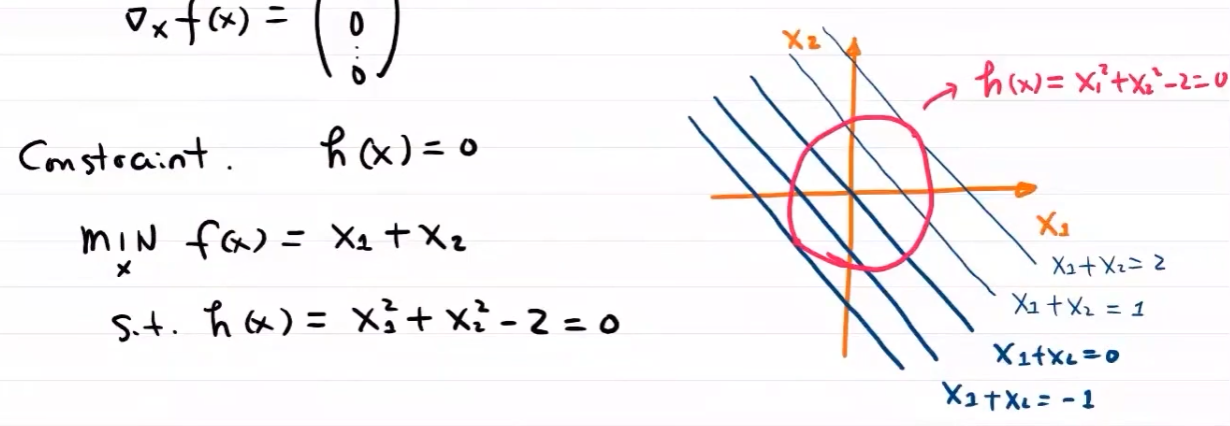 ∇ₓf(x) = (0 ⋮ 0)
Constraint. h(x) = 0
MIN f(x) = x₁ + x₂
x
s.t. h(x) = x₁² + x₂² - 2 = 0
x₂
→ h(x) = x₁² + x₂² - 2 = 0
x₁
x₁ + x₂ = 2
x₁ + x₂ = 1
x₁ + x₂ = 0
x₁ + x₂ = -1